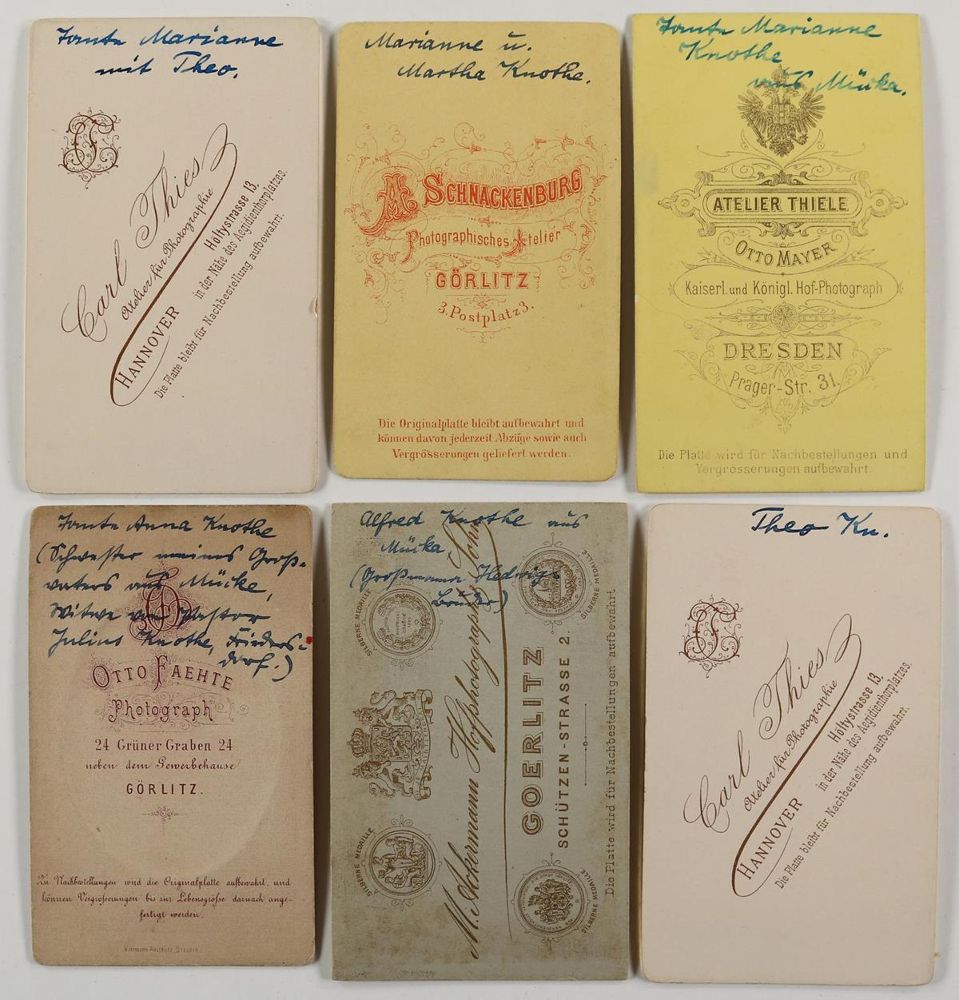 Tante Marianne
mit Theo.
Carl Thies
Atelier für Photographie
HANNOVER
Höltystrasse 13.
in der Nähe des Aegidienthorplatzes.
Die Platte bleibt für Nachbestellung aufbewahrt.
Marianne u.
Martha Knothe.
A. SCHNACKENBURG
Photographisches Atelier
GÖRLITZ
3. Postplatz 3.
Die Originalplatte bleibt aufbewahrt und
können davon jederzeit Abzüge sowie auch
Vergrösserungen geliefert werden.
Tante Marianne
Knothe
aus Mücka.
ATELIER THIELE
OTTO MAYER
Kaiserl. und Königl. Hof-Photograph
DRESDEN
Prager-Str. 31.
Die Platte wird für Nachbestellungen und
Vergrösserungen aufbewahrt.
Tante Anna Knothe
(Schwester meines Groß-
vaters aus Mücke,
Witwe von Pastor
Julius Knothe, Frieders-
dorf.)
OTTO FAEHTE
Photograph
24 Grüner Graben 24
neben dem Gewerbehause
GÖRLITZ.
Zu Nachbestellungen wird die Originalplatte aufbewahrt, und
können Vergrößerungen bis zur Lebensgröße darnach ange-
fertigt werden.
Alfred Knothe aus
Mücka
(Großmama Hedwigs
Bruder)
M. Ackermann Hofphotograph's Sohn
GOERLITZ
SCHÜTZEN-STRASSE 2.
Die Platte wird für Nachbestellungen aufbewahrt
SILBERNE MEDAILLE
SILBERNE MEDAILLE
SILBERNE MEDAILLE
SILBERNE MEDAILLE
Theo Kn.
Carl Thies
Atelier für Photographie
HANNOVER
Höltystrasse 13.
in der Nähe des Aegidienthorplatzes.
Die Platte bleibt für Nachbestellung aufbewahrt.